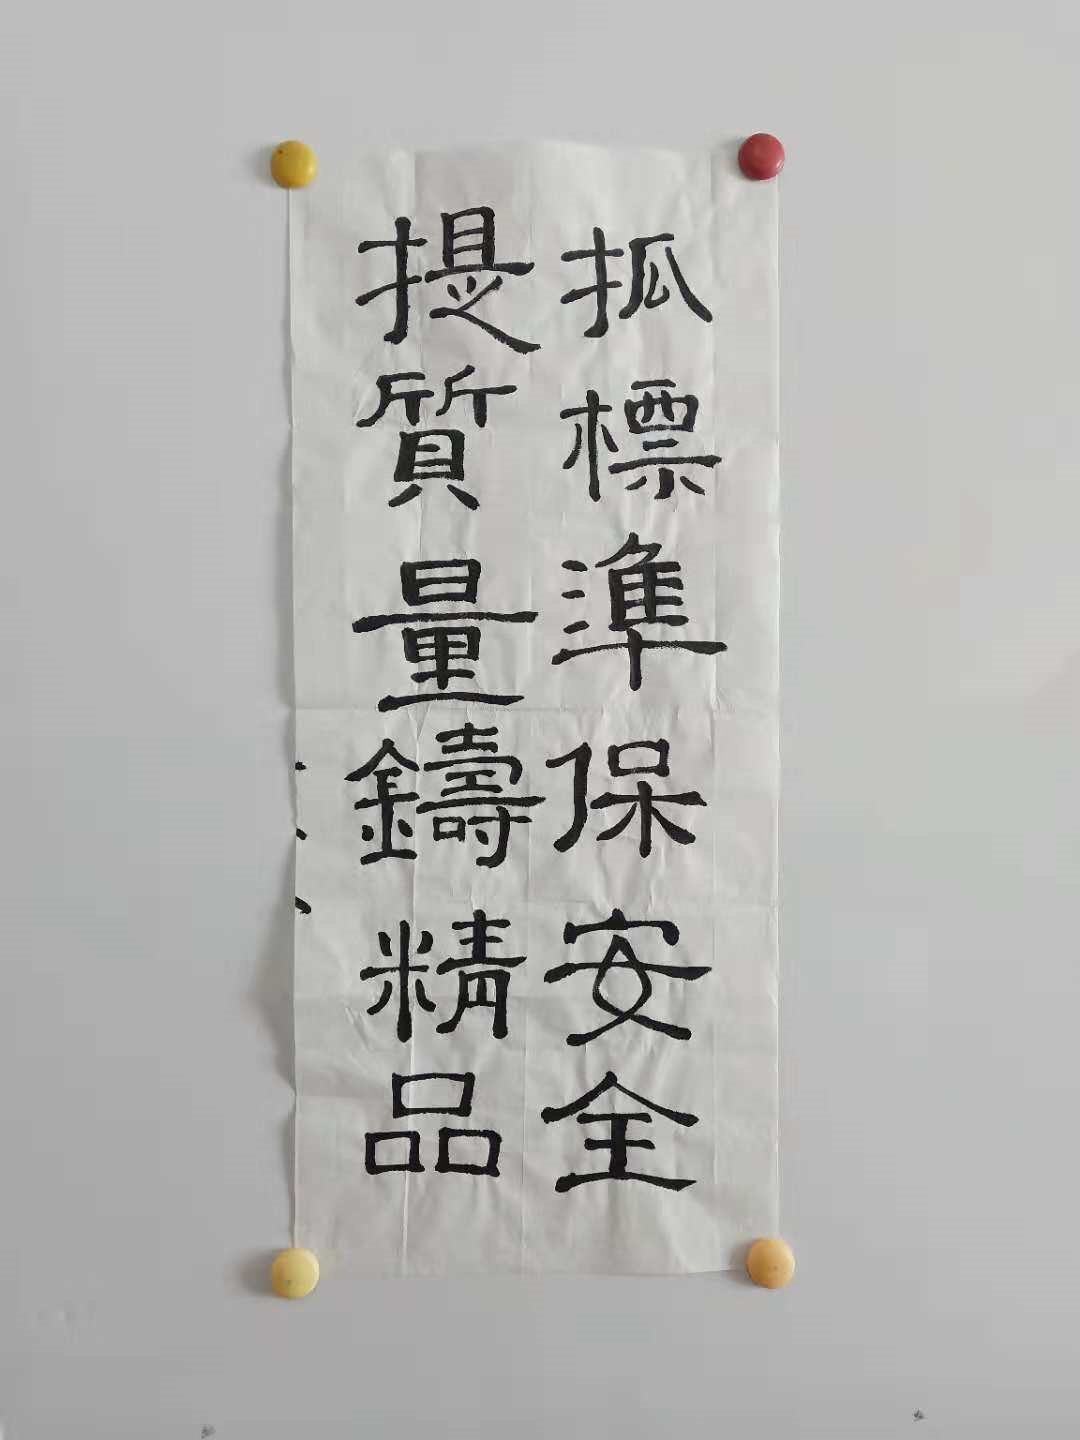 抓標準保安全
提質量鑄精品